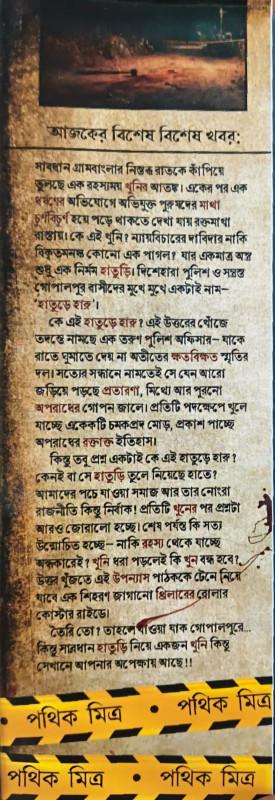 আজকের বিশেষ বিশেষ খবর:
সাবধান গ্রামবাংলার নিস্তব্ধ রাতকে কাঁপিয়ে
তুলছে এক রহস্যময় খুনির আতঙ্ক। একের পর এক
ধর্ষণের অভিযোগে অভিযুক্ত পুরুষদের মাথা
চূর্ণবিচূর্ণ হয়ে পড়ে থাকতে দেখা যায় রক্তমাখা
রাস্তায়। কে এই খুনি? ন্যায়বিচারের দাবিদার নাকি
বিকৃতমনস্ক কোনো এক পাগল? যার একমাত্র অস্ত্র
শুধু এক নির্মম হাতুড়ি। দিশেহারা পুলিশ ও সন্ত্রস্ত
গোপালপুর বাসীদের মুখে মুখে একটাই নাম–
'হাতুড়ে হারু'।
কে এই হাতুড়ে হারু? এই উত্তরের খোঁজে
তদন্তে নামছে এক তরুণ পুলিশ অফিসার– যাকে
রাতে ঘুমাতে দেয় না অতীতের ক্ষতবিক্ষত স্মৃতির
দল। সত্যের সন্ধানে নামতেই সে যেন আরো
জড়িয়ে পড়ছে প্রতারণা, মিথ্যে আর পুরনো
অপরাধের গোপন জালে। প্রতিটি পদক্ষেপে খুলে
যাচ্ছে একেকটি চমকপ্রদ মোড়, প্রকাশ পাচ্ছে
অপরাধের রক্তাক্ত ইতিহাস।
কিন্তু তবু প্রশ্ন একটাই কে এই হাতুড়ে হারু?
কেনই বা সে হাতুড়ি তুলে নিয়েছে হাতে?
আমাদের পচে যাওয়া সমাজ আর তার নোংরা
রাজনীতি কিন্তু নির্বাক! প্রতিটি খুনের পর প্রশ্নটা
আরও জোরালো হচ্ছে। শেষ পর্যন্ত কি সত্য
উন্মোচিত হচ্ছে– নাকি রহস্য থেকে যাচ্ছে
অন্ধকারেই? খুনি ধরা পড়লেই কি খুন বন্ধ হবে?
উত্তর খুঁজতে এই উপন্যাস পাঠককে টেনে নিয়ে
যাবে এক শিহরণ জাগানো থ্রিলারের রোলার
কোস্টার রাইডে।
তৈরি তো? তাহলে যাওয়া যাক গোপালপুরে...
কিন্তু সাবধান হাতুড়ি নিয়ে একজন খুনি কিন্তু
সেখানে আপনার অপেক্ষায় আছে!!
পথিক মিত্র • পথিক মিত্র
পথিক মিত্র • পথিক মিত্র